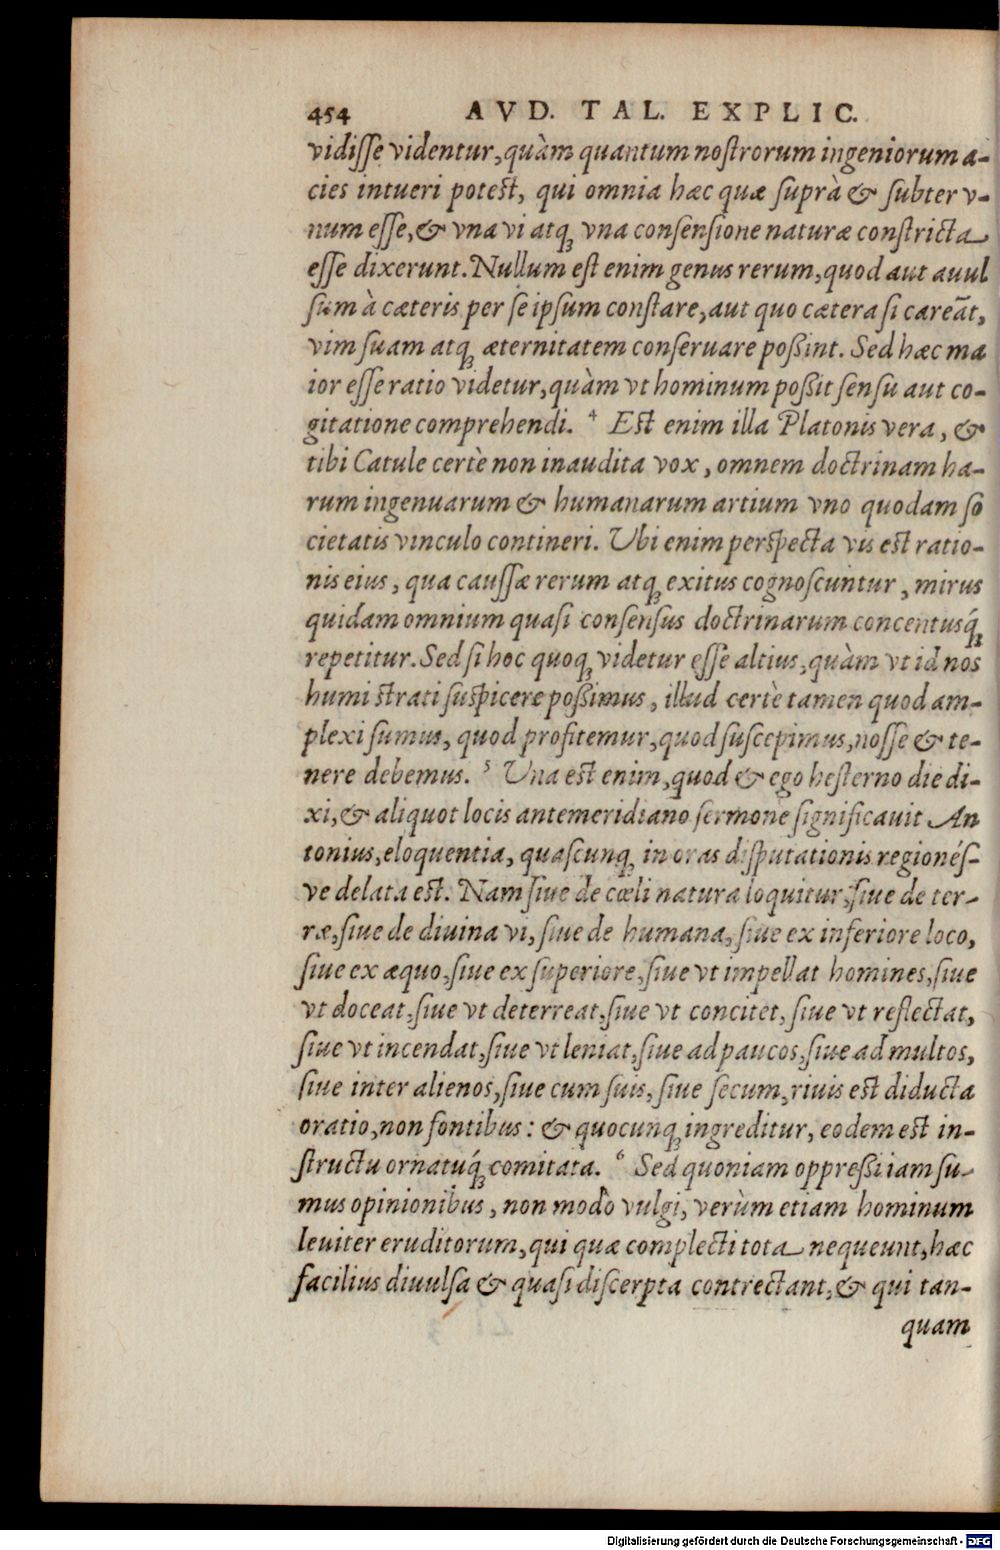 454 AVD. TAL. EXPLIC.
vidiſſe videntur, quàm quantum noſtrorum ingeniorum a-
cies intueri poteſt, qui omnia hæc quæ ſuprà & ſubter v-
num eſſe, & vna vi atq́; vna conſenſione naturæ conſtricta
eſſe dixerunt. Nullum eſt enim genus rerum, quod aut auul
ſum à cæteris per ſe ipſum conſtare, aut quo cætera ſi careāt,
vim ſuam atq; æternitatem conſeruare poßint. Sed hæc ma
ior eſſe ratio videtur, quàm vt hominum poßit ſenſu aut co-
gitatione comprehendi. 4 Eſt enim illa Platonis vera, &
tibi Catule certè non inaudita vox, omnem doctrinam ha-
rum ingenuarum & humanarum artium vno quodam ſo
cietatis vinculo contineri. Vbi enim perſpecta vis eſt ratio-
nis eius, qua cauſſæ rerum atq; exitus cognoſcuntur, mirus
quidam omnium quaſi conſenſus doctrinarum concentusq́;
repetitur. Sed ſi hoc quoq; videtur eſſe altius, quàm vt id nos
humi ſtrati ſuſpicere poßimus, illud certè tamen quod am-
plexi ſumus, quod profitemur, quod ſuſcepimus, noſſe & te-
nere debemus. 5 Vna eſt enim, quod & ego heſterno die di-
xi, & aliquot locis antemeridiano ſermone ſignificauit An
tonius, eloquentia, quaſcunq; in oras diſputationis regionéſ-
ve delata eſt. Nam ſiue de cœli natura loquitur, ſiue de ter-
ræ, ſiue de diuina vi, ſiue de humana, ſiue ex inferiore loco,
ſiue ex æquo, ſiue ex ſuperiore, ſiue vt impellat homines, ſiue
vt doceat, ſiue vt deterreat, ſiue vt concitet, ſiue vt reflectat,
ſiue vt incendat, ſiue vt leniat, ſiue ad paucos, ſiue ad multos,
ſiue inter alienos, ſiue cum ſuis, ſiue ſecum, riuis eſt diducta
oratio, non fontibus: & quocunq; ingreditur, eodem eſt in-
ſtructu ornatuq́; comitata. 6 Sed quoniam oppreßi iam ſu-
mus opinionibus, non modò vulgi, verùm etiam hominum
leuiter eruditorum, qui quæ complecti tota nequeunt, hæc
facilius diuulſa & quaſi diſcerpta contrectant, & qui tan-
quam
Digitalisierung gefördert durch die Deutsche Forschungsgemeinschaft - DFG